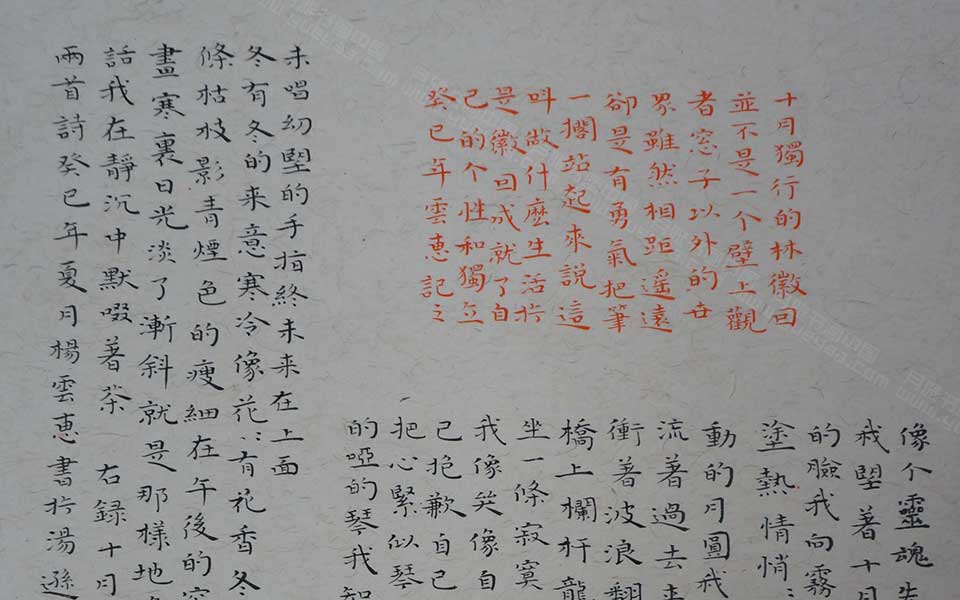 十月獨行的林徽因
並不是一个壁上觀
者窓子以外的世
界雖然相距遥遠
卻是有勇氣把筆
一擱站起來說這
呌做什麼生活於
是徽因成就了自
己的个性和獨立
癸巳年雲恵記之
像个靈魂失
我望著十月
的臉我向霧
塗熱情悄:
動的月圓我
流着過去
衝著波浪翻
橋上欄杆龍
坐一條寂寞
我像笑像自
己抱歉自己
把心緊似琴
的啞的琴我知
未唱幼望的手指終未来在上面
冬有冬的来意寒冷像花:有花香冬
條枯枝影青煙色的瘦細在午後的窗
畫寒裏日光淡了漸斜就是那樣地
話我在靜沉中默啜著茶 右録十月
兩首詩癸巳年夏月楊雲恵書於湯遜